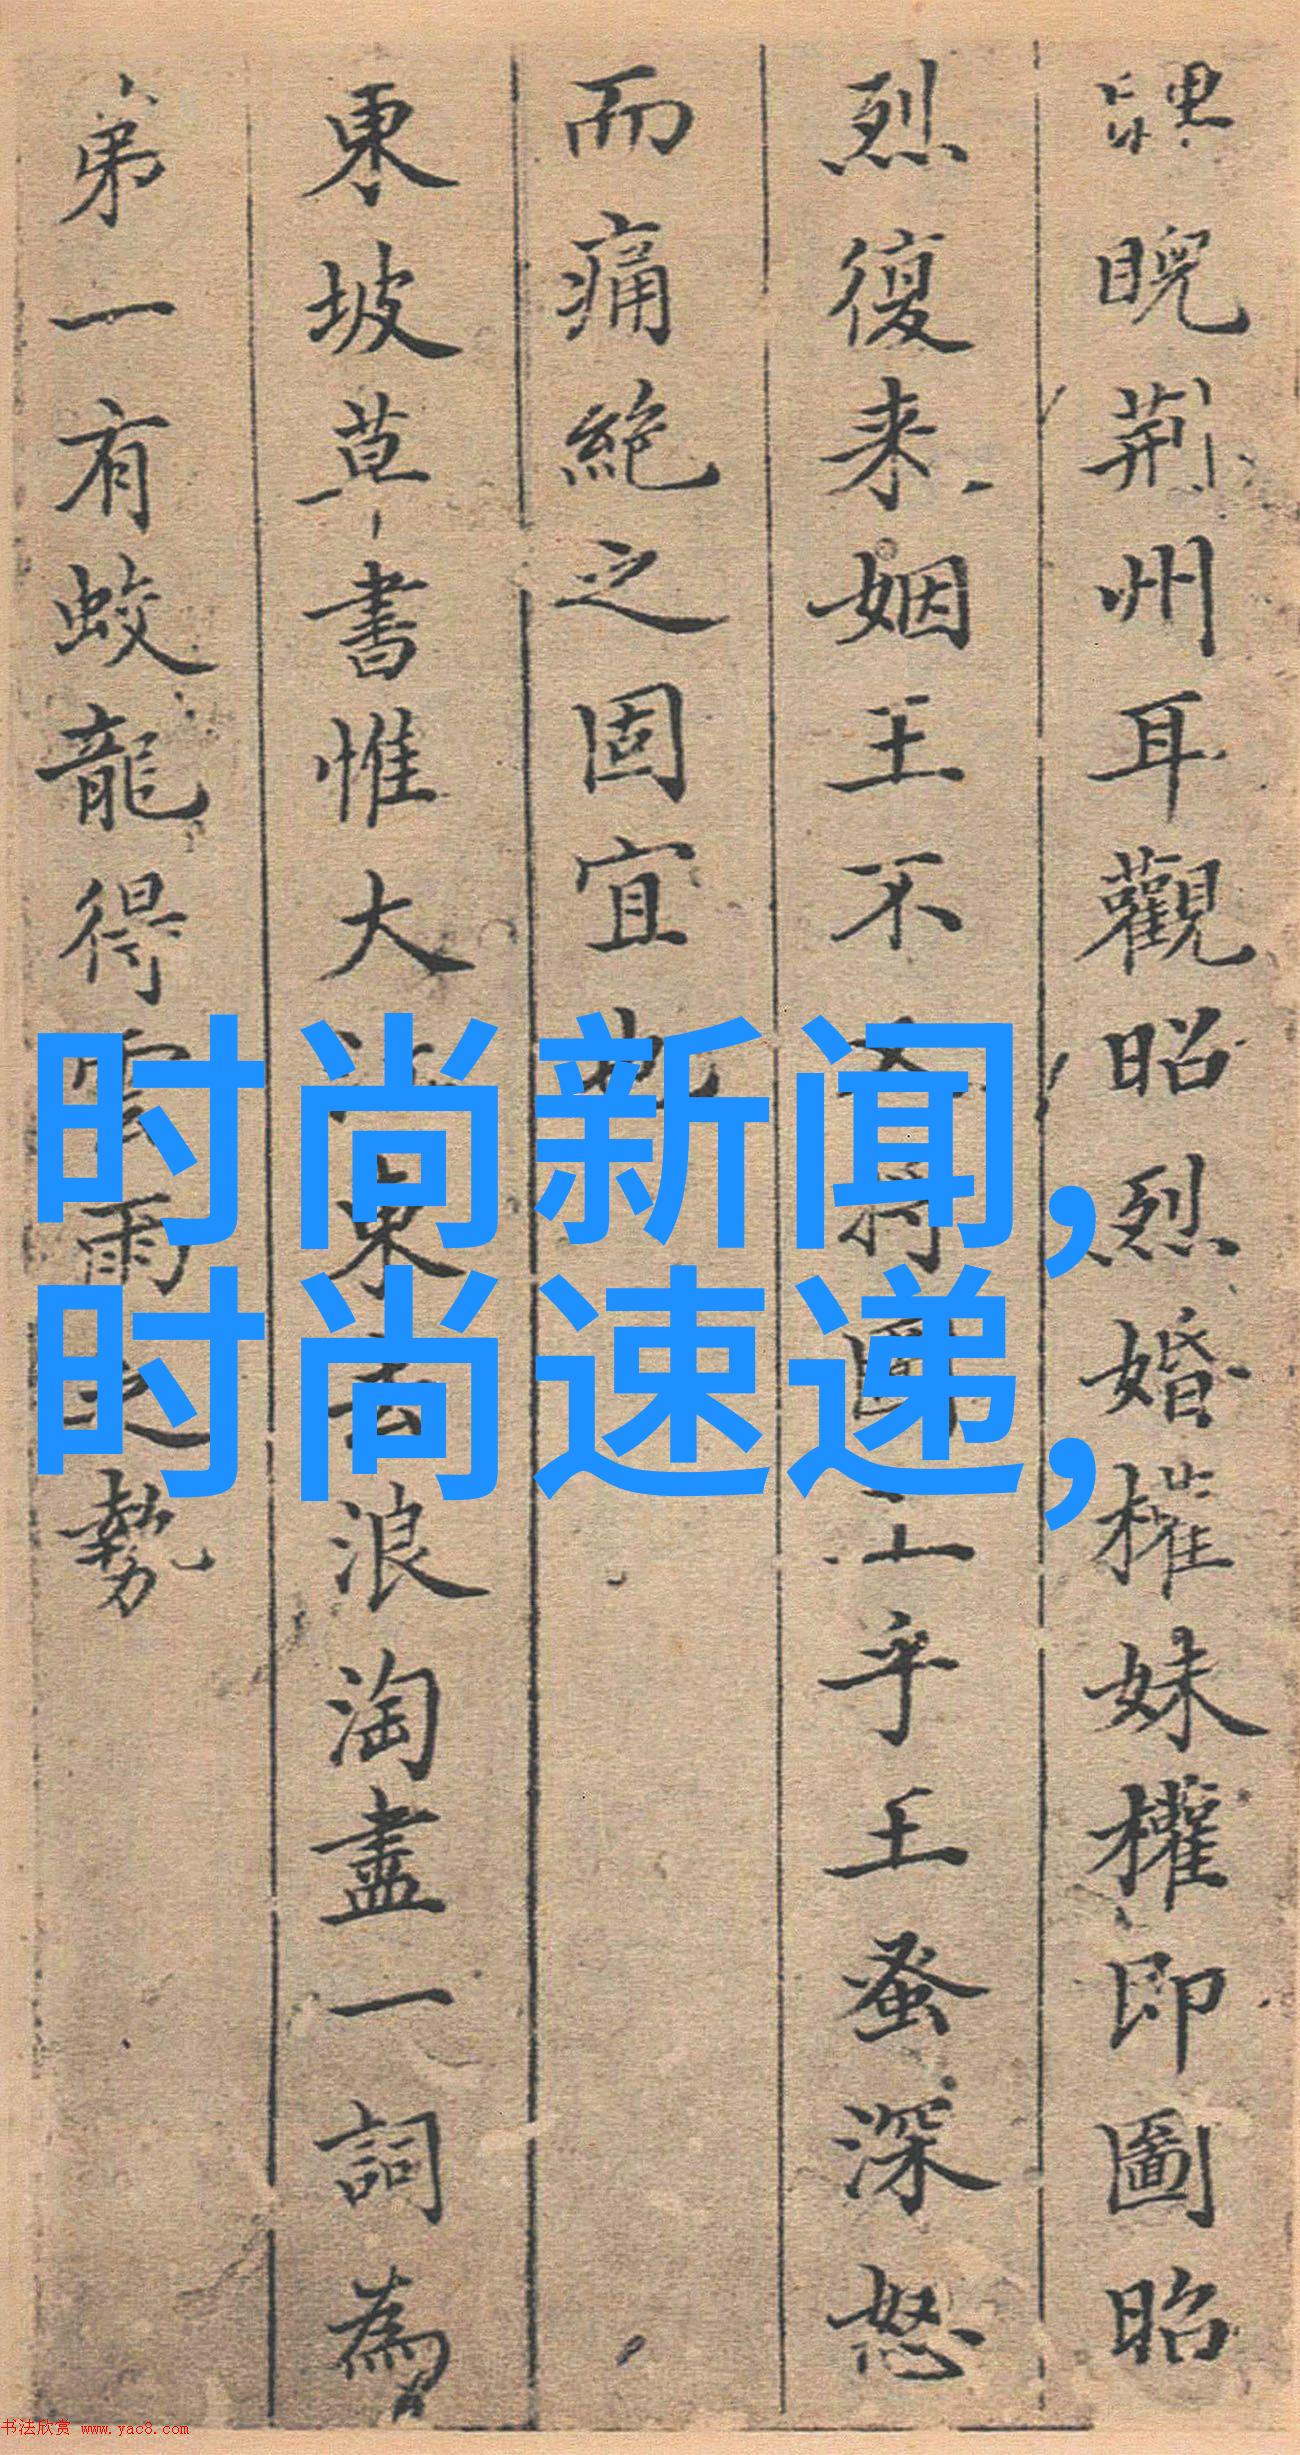 睨荆州耳觀昭烈婚權妹權即圖昭
烈復来姻王不乎王蚤深怒
而痛絶之固宜
東坡草書惟大東去浪淘盡一詞為
弟一有蛟龍得雲雨之勢
时尚新闻,
时尚速递,
书法欣赏 www.yac8.com